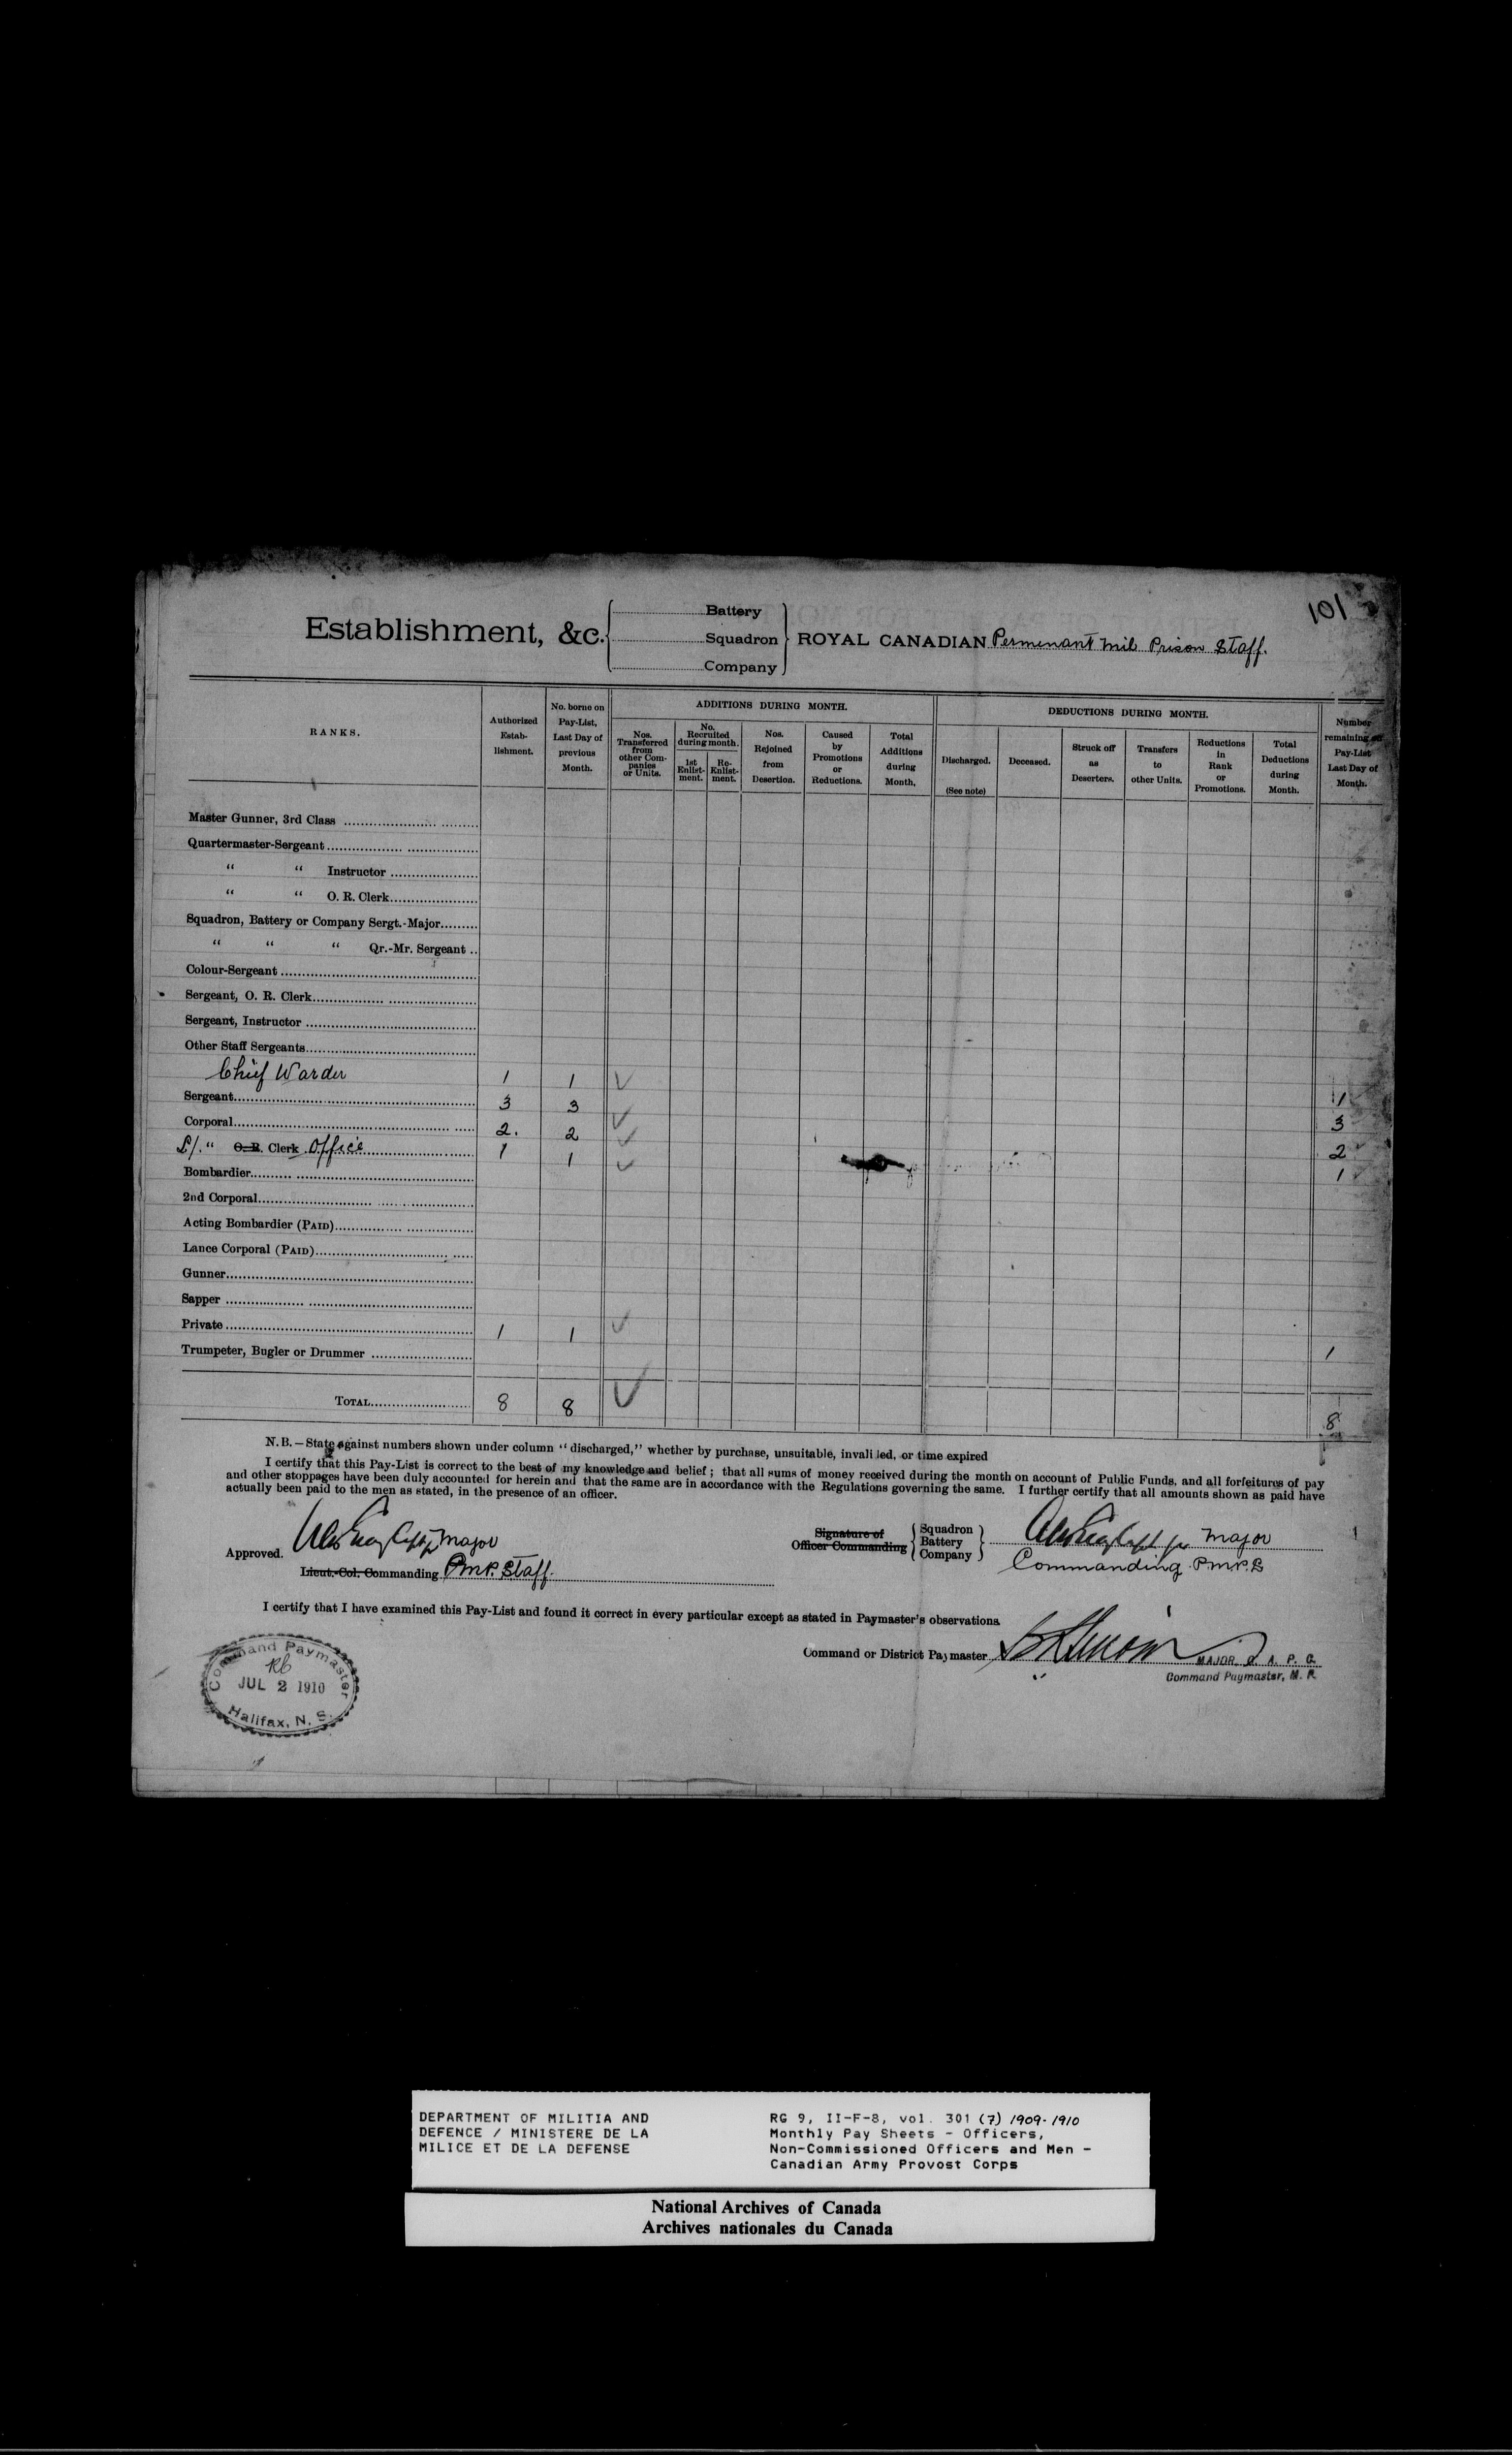 101
Establishment, &c.
Battery
Squadron
Company
ROYAL CANADIAN Permenant Mil Prison Staff.
RANKS.
Authorized Estab- lishment.
No. borne on Pay-List, Last Day of previous Month.
ADDITIONS DURING MONTH.
Nos. Transferred from other Com- panies or Units.
No. Recruited during month.
1st Enlist- ment.
Re- Enlist- ment.
Nos. Rejoined from Desertion.
Caused by Promotions or Reductions.
Total Additions during Month.
DEDUCTIONS DURING MONTH.
Discharged. (See note)
Deceased.
Struck off as Deserters.
Transfers to other Units.
Reductions in Rank or Promotions.
Total Deductions during Month.
Number remaining on Pay-List Last Day of Month.
Master Gunner, 3rd Class
Quartermaster-Sergeant
" " Instructor
" " O. R. Clerk
Squadron, Battery or Company Sergt.-Major
" " " Qr.-Mr. Sergeant
Colour-Sergeant
Sergeant, O. R. Clerk
Sergeant, Instructor
Other Staff Sergeants
Chief Warder 1 1 ✓ 1
Sergeant 3 3 ✓ 3
Corporal 2. 2 ✓ 2
L/. " O. R. Clerk Office 1 1 ✓ 1
Bombardier
2nd Corporal
Acting Bombardier (PAID)
Lance Corporal (PAID)
Gunner
Sapper
Private 1 1 ✓ 1
Trumpeter, Bugler or Drummer
TOTAL 8 8 ✓ 8
N.B.—State against numbers shown under column "discharged," whether by purchase, unsuitable, invalided, or time expired
I certify that this Pay-List is correct to the best of my knowledge and belief; that all sums of money received during the month on account of Public Funds, and all forfeitures of pay
and other stoppages have been duly accounted for herein and that the same are in accordance with the Regulations governing the same. I further certify that all amounts shown as paid have
actually been paid to the men as stated, in the presence of an officer.
Approved. Major
Lieut.-Col. Commanding P.M.P. Staff.
Signature of Officer Commanding
Squadron
Battery
Company
Major
Commanding P.M.P.S
I certify that I have examined this Pay-List and found it correct in every particular except as stated in Paymaster's observations
Command or District Paymaster
MAJOR, C. A. P. C.
Command Paymaster, M. P.
Command Paymaster
JUL 2 1910
Halifax, N. S.
DEPARTMENT OF MILITIA AND
DEFENCE / MINISTERE DE LA
MILICE ET DE LA DEFENSE
RG 9, II-F-8, vol. 301 (7) 1909-1910
Monthly Pay Sheets - Officers,
Non-Commissioned Officers and Men -
Canadian Army Provost Corps
National Archives of Canada
Archives nationales du Canada